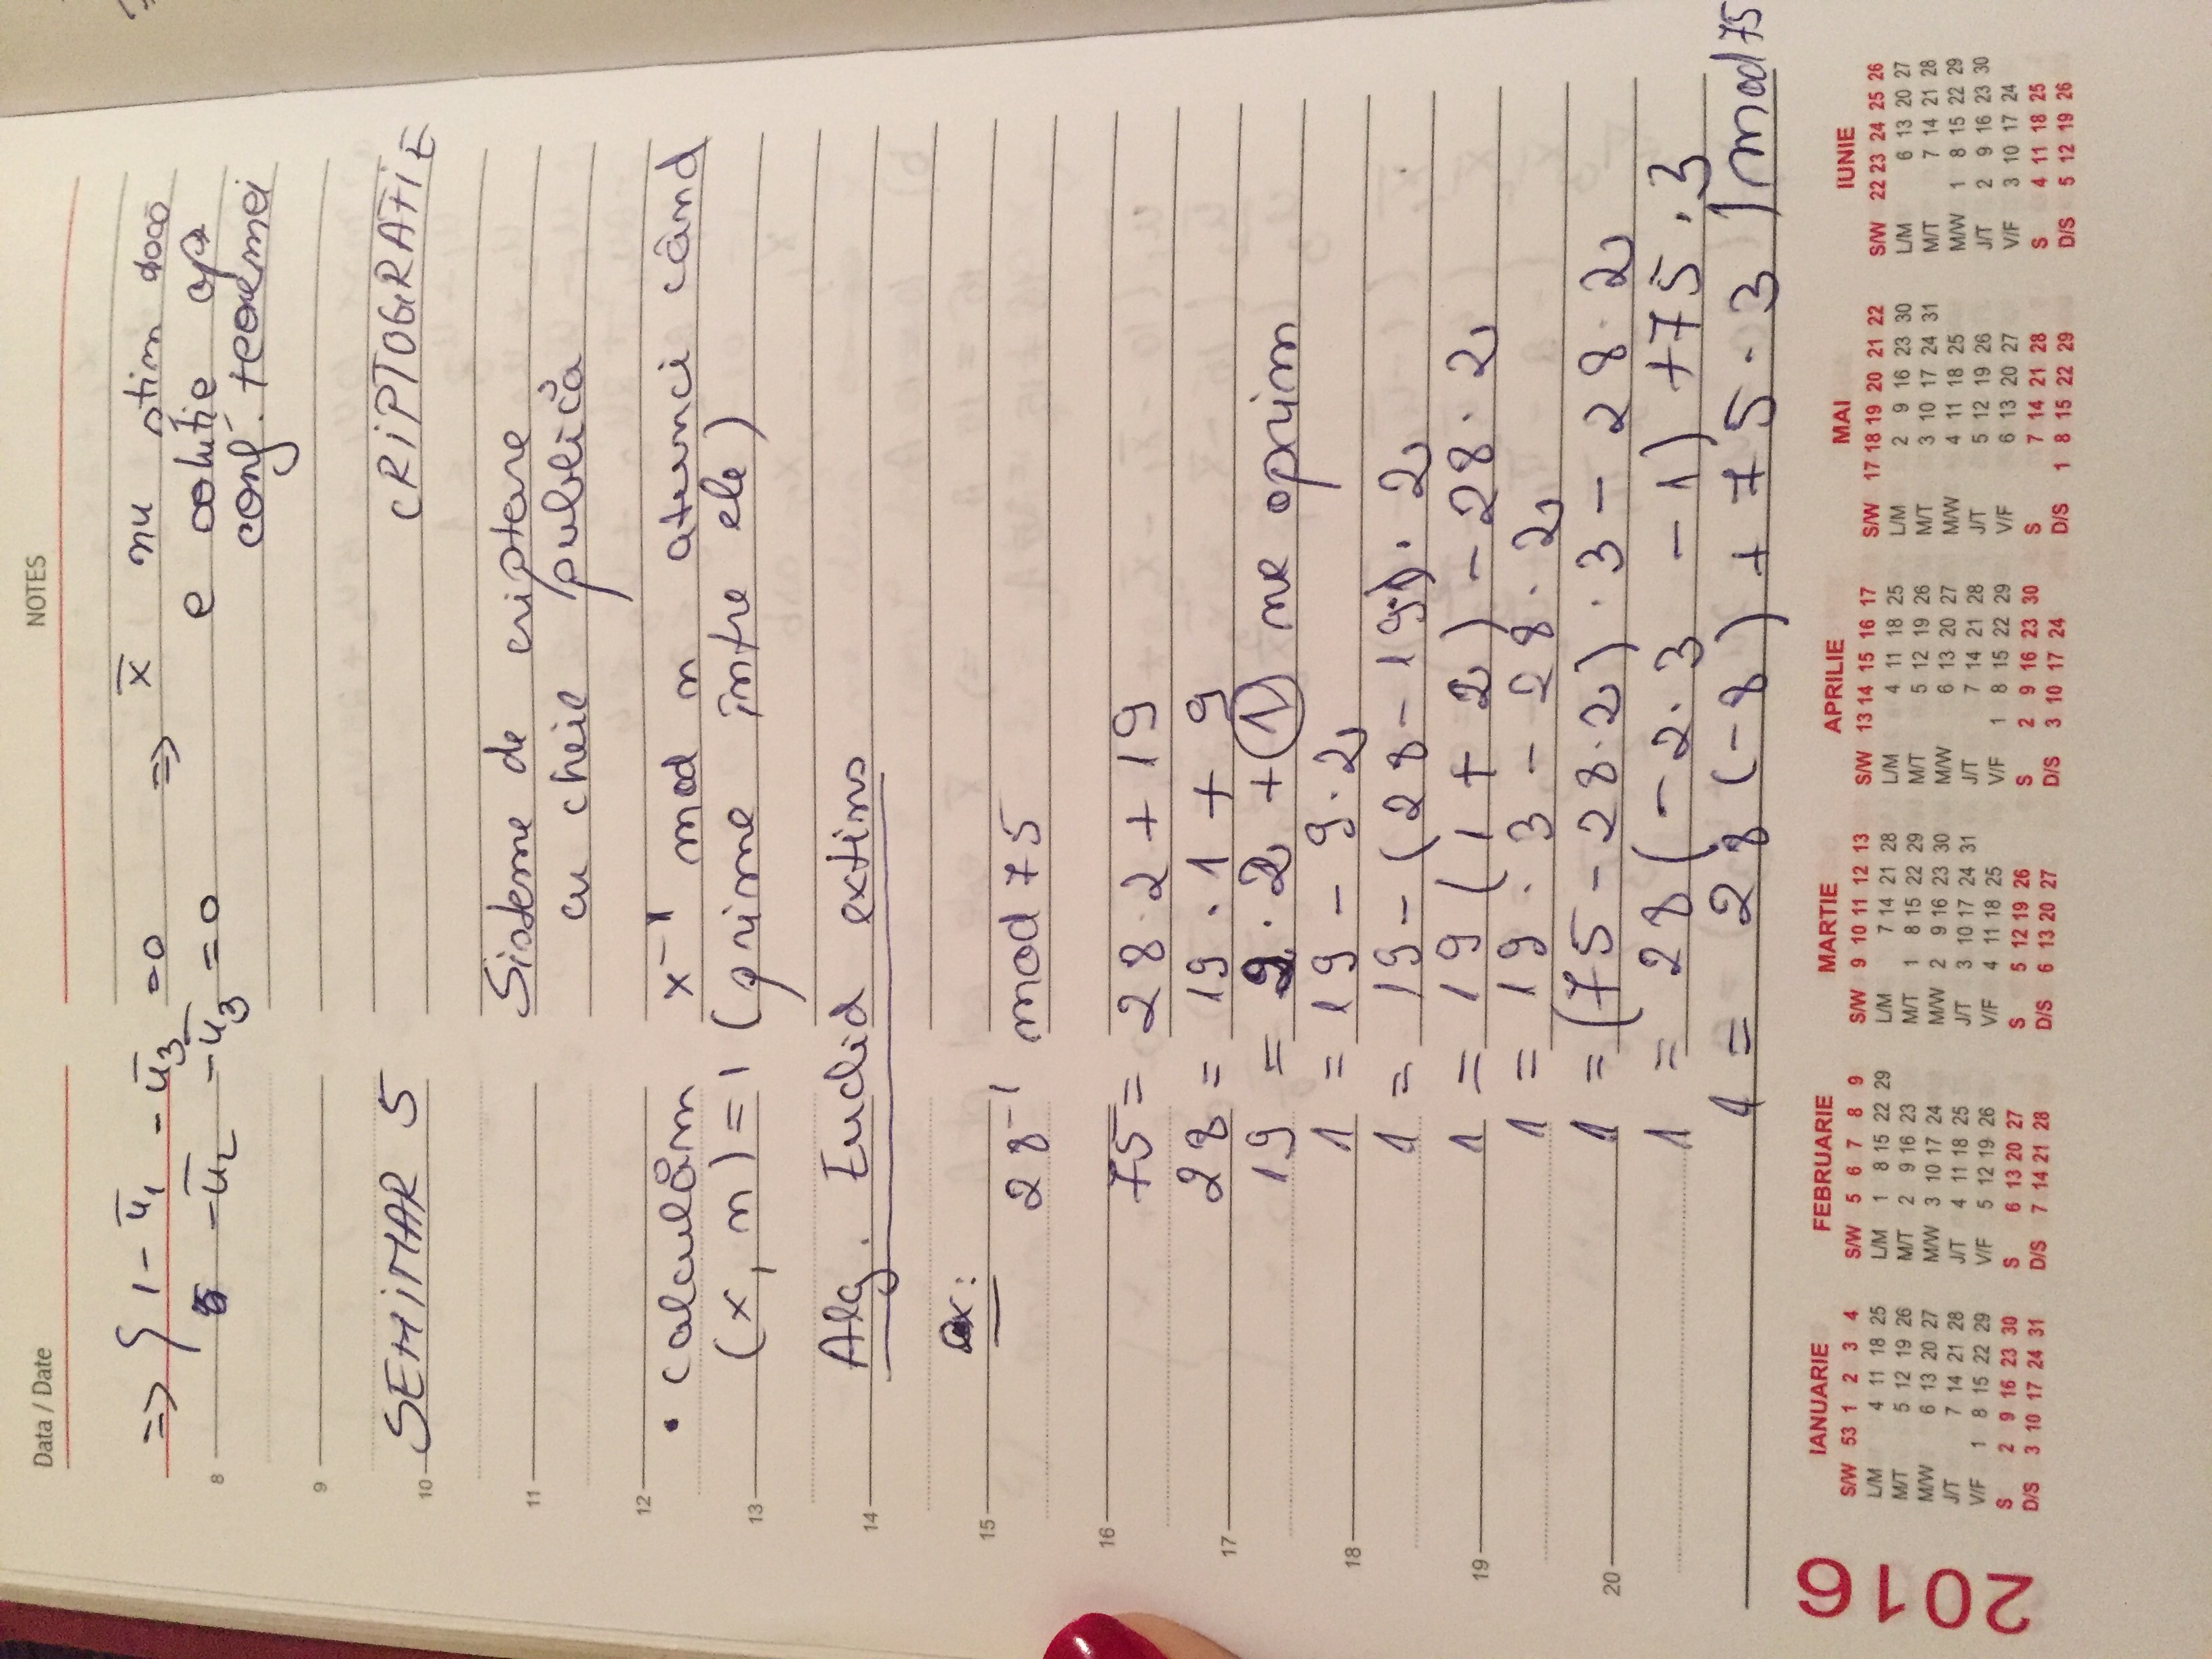 Data / Date NOTES
=> { 1 - ū1 - ū3 = 0 => x̄ nu știm dacă
8 5 - ū2 - ū3 = 0 e soluție op
conf. teoremei
9
10 SEMINAR 5 CRIPTOGRAFIE
11 Sisteme de criptare
cu cheie publică
12
• calculăm x⁻¹ mod n atunci când
13 (x, n) = 1 (prime între ele)
14 Alg. Euclid extins
15 ex:
28⁻¹ mod 75
16
75 = 28·2 + 19
17 28 = 19·1 + 9
19 = 9·2 + 1 ne oprim
18 1 = 19 - 9·2
1 = 19 - (28 - 19·1)·2
19 1 = 19(1 + 2) - 28·2
1 = 19·3 - 28·2
20 1 = (75 - 28·2)·3 - 28·2
1 = 28(-2·3 - 1) + 75·3
1 = 28(-8) + 75·3 | mod 75
2016
IANUARIE
S/W 53 1 2 3 4
L/M 4 11 18 25
M/T 5 12 19 26
M/W 6 13 20 27
J/T 7 14 21 28
V/F 1 8 15 22 29
S 2 9 16 23 30
D/S 3 10 17 24 31
FEBRUARIE
S/W 5 6 7 8 9
L/M 1 8 15 22 29
M/T 2 9 16 23
M/W 3 10 17 24
J/T 4 11 18 25
V/F 5 12 19 26
S 6 13 20 27
D/S 7 14 21 28
MARTIE
S/W 9 10 11 12 13
L/M 7 14 21 28
M/T 1 8 15 22 29
M/W 2 9 16 23 30
J/T 3 10 17 24 31
V/F 4 11 18 25
S 5 12 19 26
D/S 6 13 20 27
APRILIE
S/W 13 14 15 16 17
L/M 4 11 18 25
M/T 5 12 19 26
M/W 6 13 20 27
J/T 7 14 21 28
V/F 1 8 15 22 29
S 2 9 16 23 30
D/S 3 10 17 24
MAI
S/W 17 18 19 20 21 22
L/M 2 9 16 23 30
M/T 3 10 17 24 31
M/W 4 11 18 25
J/T 5 12 19 26
V/F 6 13 20 27
S 7 14 21 28
D/S 1 8 15 22 29
IUNIE
S/W 22 23 24 25 26
L/M 6 13 20 27
M/T 7 14 21 28
M/W 1 8 15 22 29
J/T 2 9 16 23 30
V/F 3 10 17 24
S 4 11 18 25
D/S 5 12 19 26